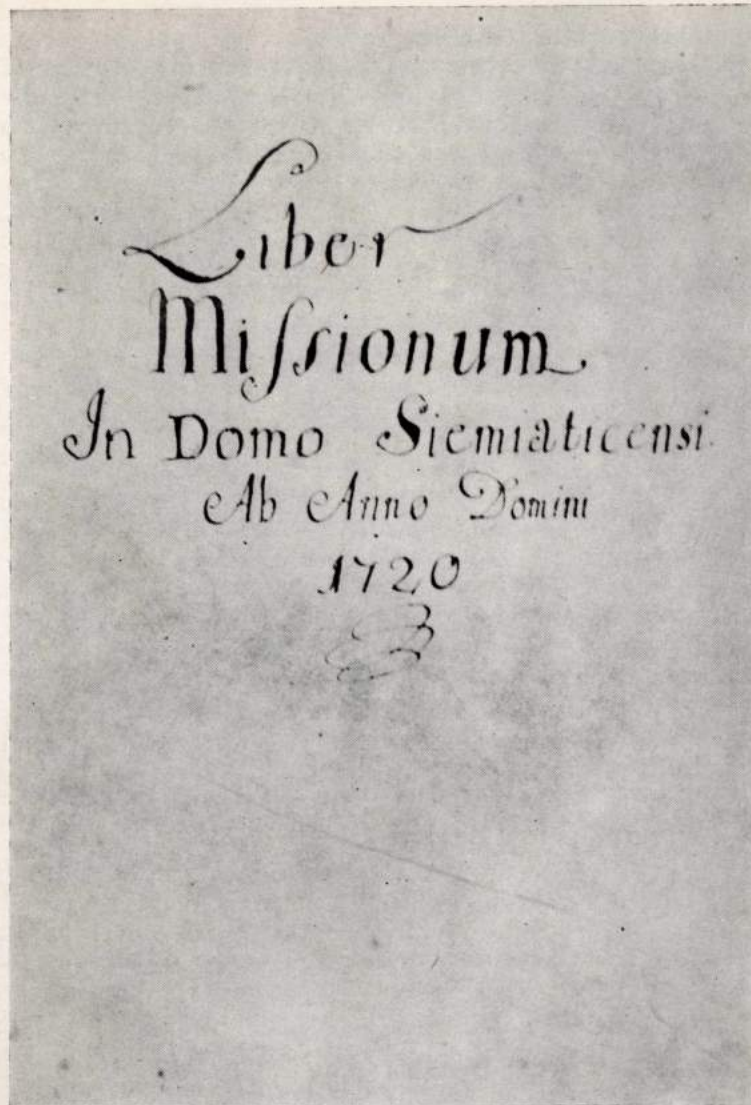 Liber
Miſsionum
In Domo Siemiaticensi
Ab Anno Domini
1720